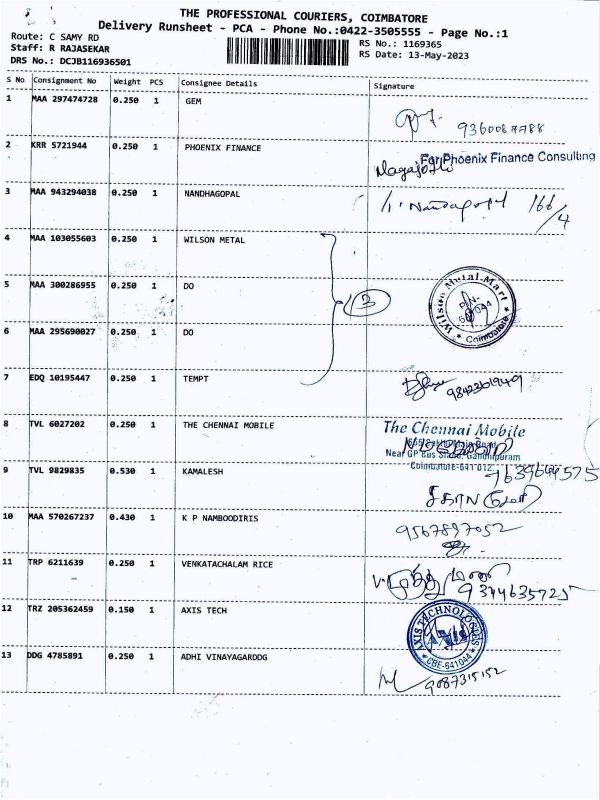 THE PROFESSIONAL COURIERS, COIMBATORE
Delivery Runsheet - PCA - Phone No.:0422-3505555 - Page No.:1
Route: C SAMY RD
Staff: R RAJASEKAR
DRS No.: DCJB116936501
RS No.: 1169365
RS Date: 13-May-2023
S No Consignment No Weight PCS Consignee Details Signature
1 MAA 297474728 0.250 1 GEM
2 KRR 5721944 0.250 1 PHOENIX FINANCE
For Phoenix Finance Consulting
3 MAA 943294038 0.250 1 NANDHAGOPAL
166/4
4 MAA 103055603 0.250 1 WILSON METAL
5 MAA 300286955 0.250 1 DO
3
Wilson Metal Mart
Coimbatore
6 MAA 295690027 0.250 1 DO
7 EDQ 10195447 0.250 1 TEMPT
8 TVL 6027202 0.250 1 THE CHENNAI MOBILE
The Chennai Mobile
Near GP Bus Stand, Gandhipuram
Coimbatore-641 012
9 TVL 9829835 0.530 1 KAMALESH
10 MAA 570267237 0.430 1 K P NAMBOODIRIS
9567897052
11 TRP 6211639 0.250 1 VENKATACHALAM RICE
9344635725
12 TRZ 205362459 0.150 1 AXIS TECH
AXIS TECHNOLOGIES
CBE-641044
13 DDG 4785891 0.250 1 ADHI VINAYAGARDDG
9087315152